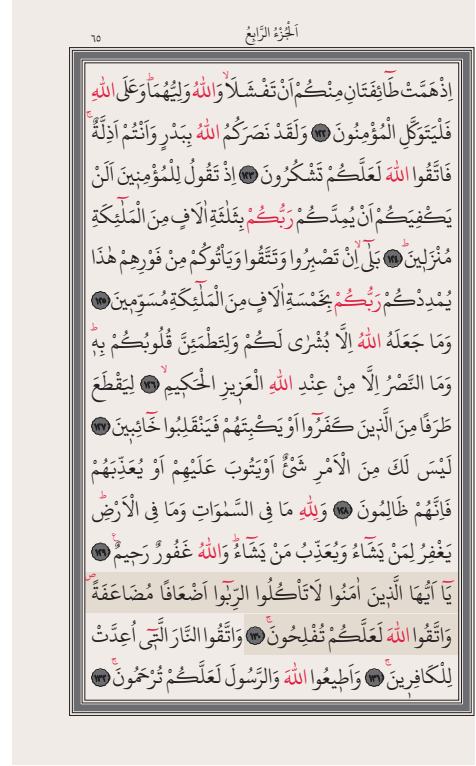 ٦٥ اَلْجُزْءُ الرَّابِعُ
اِذْ هَمَّتْ طَٓائِفَتَانِ مِنْكُمْ اَنْ تَفْشَلَاۙ وَاللّٰهُ وَلِيُّهُمَاۜ وَعَلَى اللّٰهِ
فَلْيَتَوَكَّلِ الْمُؤْمِنُونَ ﴿١٢٢﴾ وَلَقَدْ نَصَرَكُمُ اللّٰهُ بِبَدْرٍ وَاَنْتُمْ اَذِلَّةٌۚ
فَاتَّقُوا اللّٰهَ لَعَلَّكُمْ تَشْكُرُونَ ﴿١٢٣﴾ اِذْ تَقُولُ لِلْمُؤْمِنٖينَ اَلَنْ
يَكْفِيَكُمْ اَنْ يُمِدَّكُمْ رَبُّكُمْ بِثَلٰثَةِ اٰلَافٍ مِنَ الْمَلٰٓئِكَةِ
مُنْزَلٖينَۜ ﴿١٢٤﴾ بَلٰٓىۙ اِنْ تَصْبِرُوا وَتَتَّقُوا وَيَأْتُوكُمْ مِنْ فَوْرِهِمْ هٰذَا
يُمْدِدْكُمْ رَبُّكُمْ بِخَمْسَةِ اٰلَافٍ مِنَ الْمَلٰٓئِكَةِ مُسَوِّمٖينَ ﴿١٢٥﴾
وَمَا جَعَلَهُ اللّٰهُ اِلَّا بُشْرٰى لَكُمْ وَلِتَطْمَئِنَّ قُلُوبُكُمْ بِهٖۜ
وَمَا النَّصْرُ اِلَّا مِنْ عِنْدِ اللّٰهِ الْعَزٖيزِ الْحَكٖيمِۙ ﴿١٢٦﴾ لِيَقْطَعَ
طَرَفًا مِنَ الَّذٖينَ كَفَرُٓوا اَوْ يَكْبِتَهُمْ فَيَنْقَلِبُوا خَٓائِبٖينَ ﴿١٢٧﴾
لَيْسَ لَكَ مِنَ الْاَمْرِ شَيْءٌ اَوْ يَتُوبَ عَلَيْهِمْ اَوْ يُعَذِّبَهُمْ
فَاِنَّهُمْ ظَالِمُونَ ﴿١٢٨﴾ وَلِلّٰهِ مَا فِي السَّمٰوَاتِ وَمَا فِي الْاَرْضِۜ
يَغْفِرُ لِمَنْ يَشَٓاءُ وَيُعَذِّبُ مَنْ يَشَٓاءُۜ وَاللّٰهُ غَفُورٌ رَحٖيمٌۚ ﴿١٢٩﴾
يَٓا اَيُّهَا الَّذٖينَ اٰمَنُوا لَا تَأْكُلُوا الرِّبٰٓوا اَضْعَافًا مُضَاعَفَةًۖ
وَاتَّقُوا اللّٰهَ لَعَلَّكُمْ تُفْلِحُونَۚ ﴿١٣٠﴾ وَاتَّقُوا النَّارَ الَّتٖٓي اُعِدَّتْ
لِلْكَافِرٖينَۚ ﴿١٣١﴾ وَاَطٖيعُوا اللّٰهَ وَالرَّسُولَ لَعَلَّكُمْ تُرْحَمُونَۚ ﴿١٣٢﴾